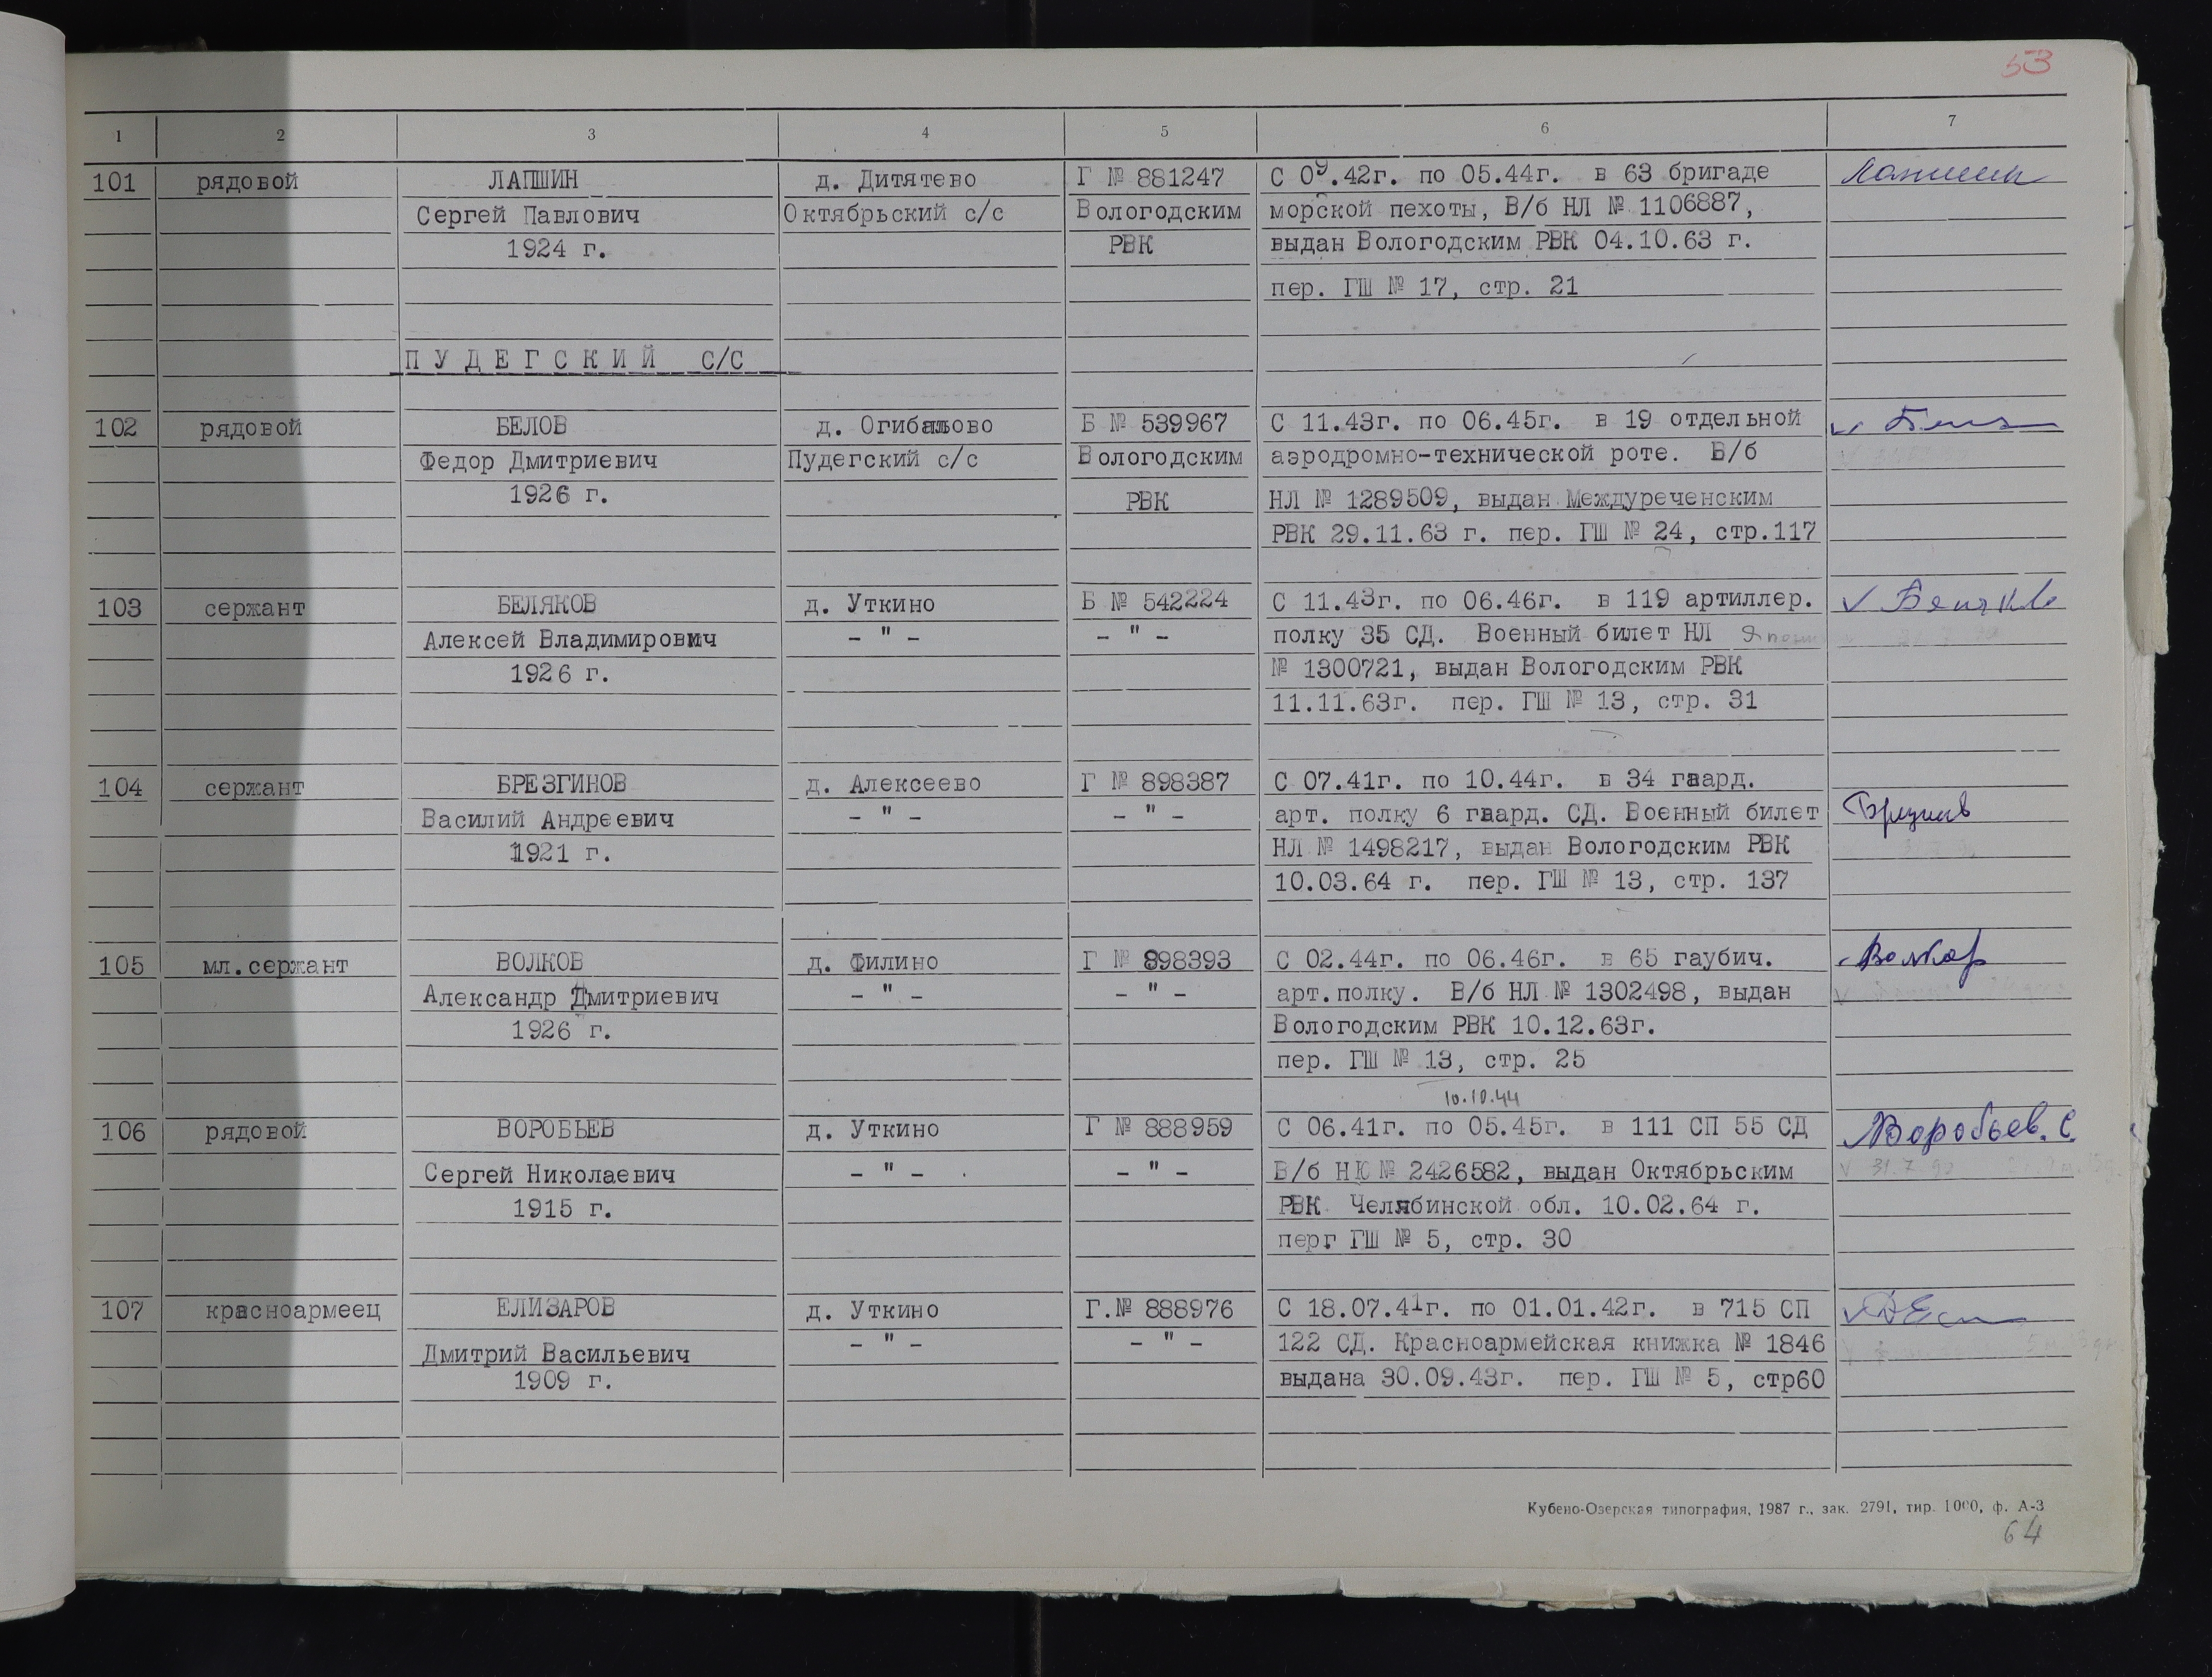 53
1 2 3 4 5 6 7
101 рядовой ЛАПШИН д. Дитятево Г № 881247 С 09.42г. по 05.44г. в 63 бригаде
Сергей Павлович Октябрьский с/с Вологодским морской пехоты, В/б НЛ № 1106887,
1924 г. РВК выдан Вологодским РВК 04.10.63 г.
пер. ГШ № 17, стр. 21
ПУДЕГСКИЙ с/с
102 рядовой БЕЛОВ д. Огибалово Б № 539967 С 11.43г. по 06.45г. в 19 отдельной
Федор Дмитриевич Пудегский с/с Вологодским аэродромно-технической роте. В/б
1926 г. РВК НЛ № 1289509, выдан Междуреченским
РВК 29.11.63 г. пер. ГШ № 24, стр.117
103 сержант БЕЛЯКОВ д. Уткино Б № 542224 С 11.43г. по 06.46г. в 119 артиллер.
Алексей Владимирович - " - - " - полку 35 СД. Военный билет НЛ
1926 г. № 1300721, выдан Вологодским РВК
11.11.63г. пер. ГШ № 13, стр. 31
104 сержант БРЕЗГИНОВ д. Алексеево Г № 898387 С 07.41г. по 10.44г. в 34 гвард.
Василий Андреевич - " - - " - арт. полку 6 гвард. СД. Военный билет
1921 г. НЛ № 1498217, выдан Вологодским РВК
10.03.64 г. пер. ГШ № 13, стр. 137
105 мл.сержант ВОЛКОВ д. Филино Г № 898393 С 02.44г. по 06.46г. в 65 гаубич. Волков
Александр Дмитриевич - " - - " - арт.полку. В/б НЛ № 1302498, выдан
1926 г. Вологодским РВК 10.12.63г.
пер. ГШ № 13, стр. 25
10.10.44
106 рядовой ВОРОБЬЕВ д. Уткино Г № 888959 С 06.41г. по 05.45г. в 111 СП 55 СД Воробьев. С.
Сергей Николаевич - " - - " - В/б НЮ № 2426582, выдан Октябрьским
1915 г. РВК Челябинской обл. 10.02.64 г.
перг ГШ № 5, стр. 30
107 красноармеец ЕЛИЗАРОВ д. Уткино Г.№ 888976 С 18.07.41г. по 01.01.42г. в 715 СП
Дмитрий Васильевич - " - - " - 122 СД. Красноармейская книжка № 1846
1909 г. выдана 30.09.43г. пер. ГШ № 5, стр60
Кубено-Озерская типография, 1987 г., зак. 2791, тир. 1000, ф. А-3
64